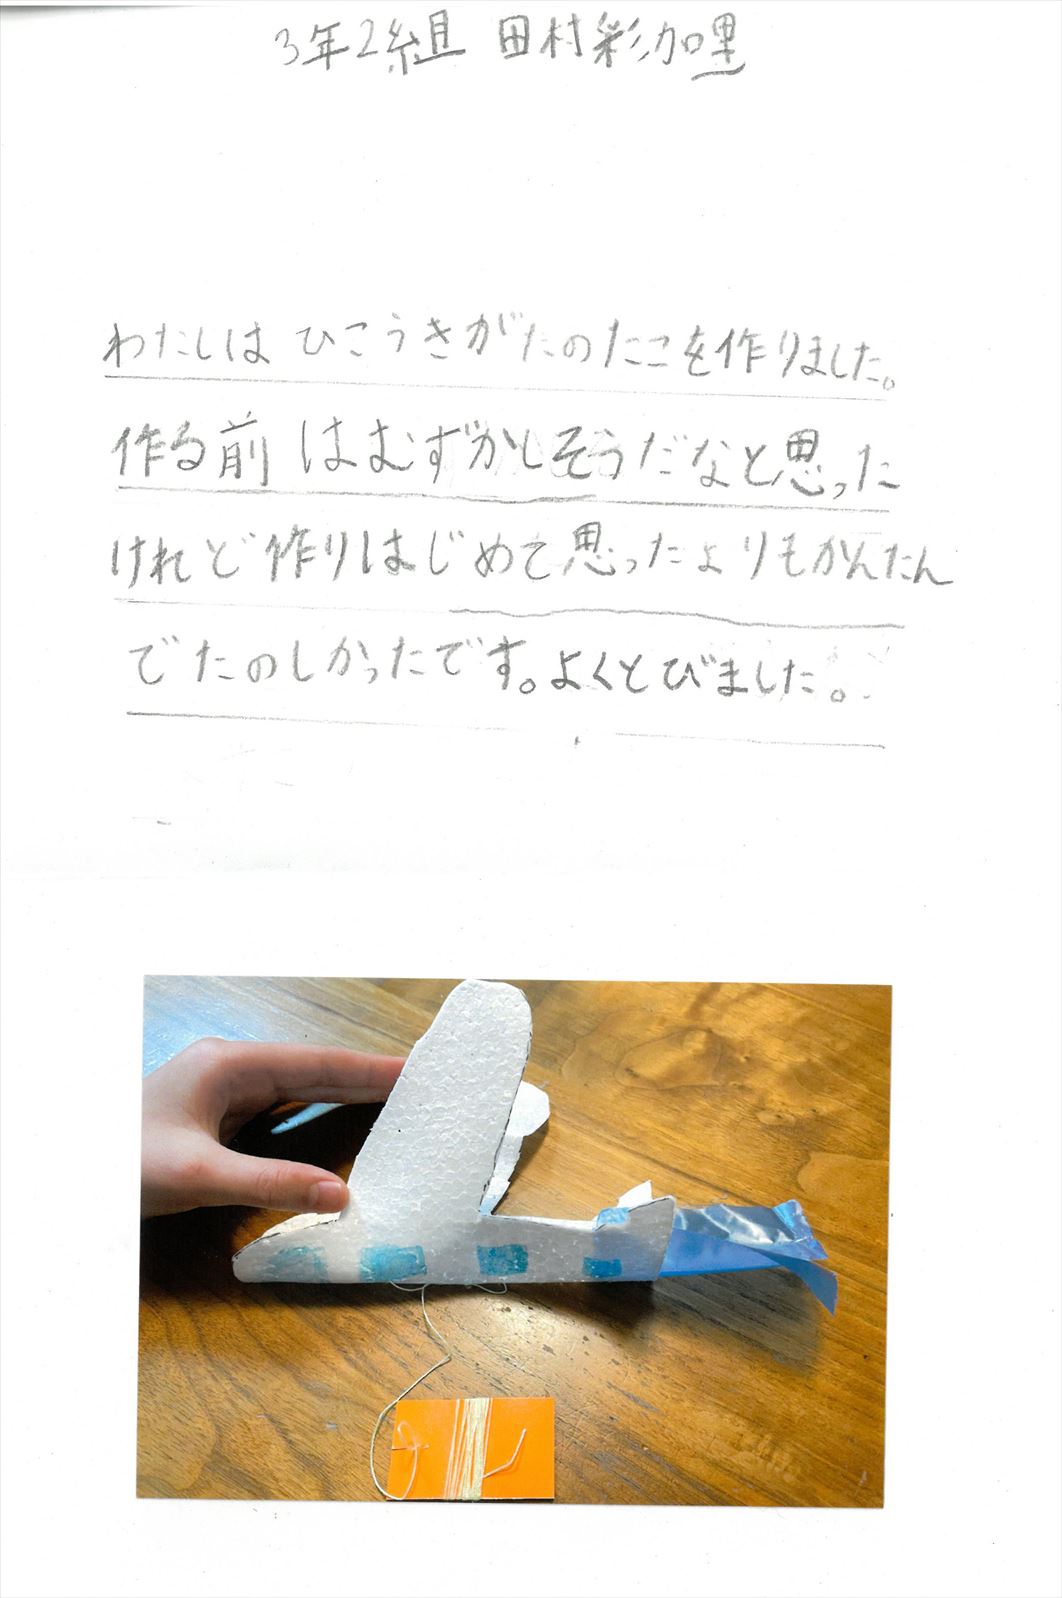 3年2組 田村彩加里
わたしは ひこうきがたのたこを作りました。
作る前 はむずかしそうだなと思った
けれど作りはじめて思ったよりもかんたん
でたのしかったです。よくとびました。